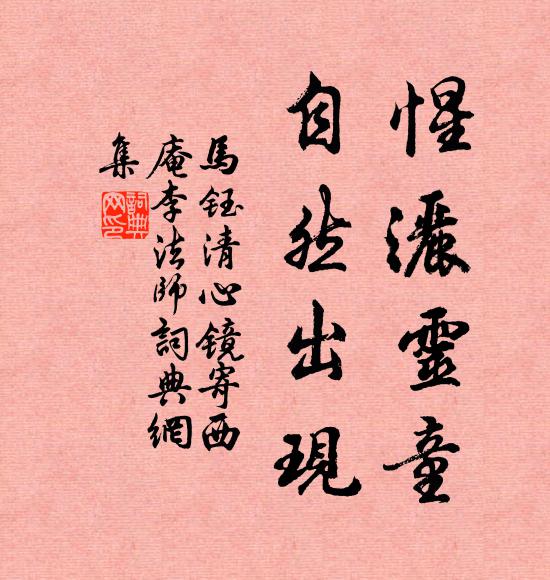 惺灑靈童
自然出現
馬鈺清心镜寄西
庵李法師詞典網
集
詞典
网印